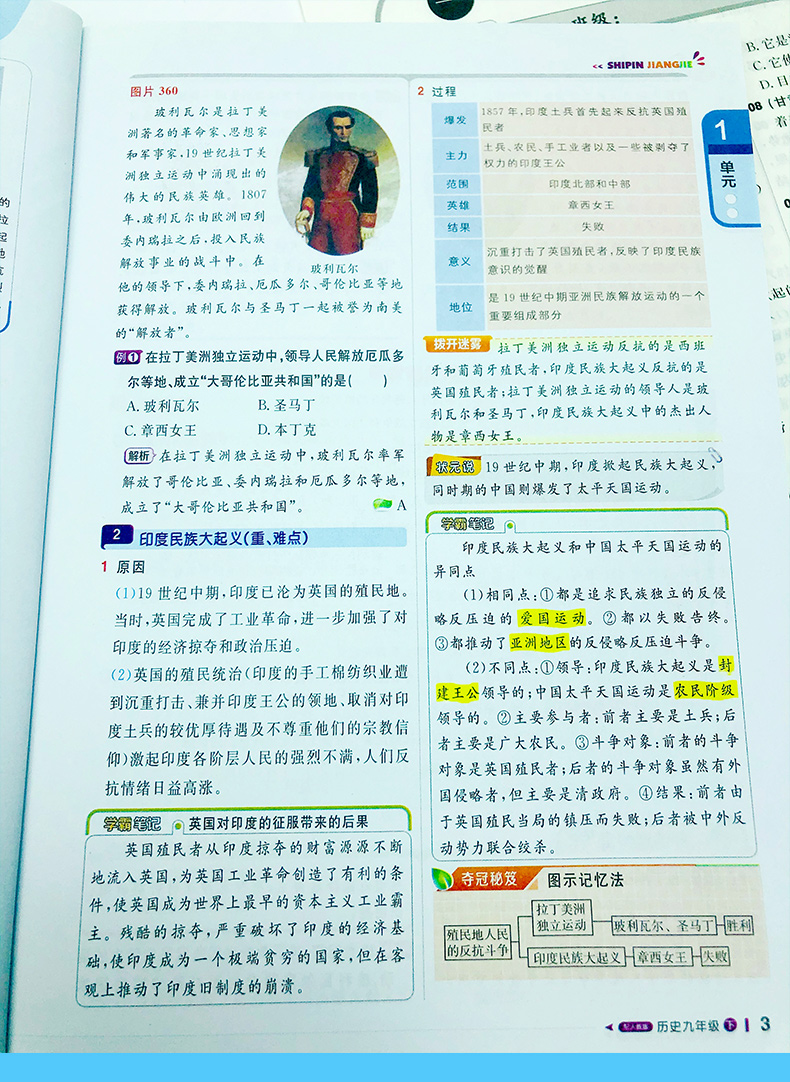 班级:
B. 它是
C. 它
D. 日
08（甘
<< SHIPIN JIANGJIE
图片 360
玻利瓦尔是拉丁美
洲著名的革命家、思想家
和军事家,19 世纪拉丁美
洲独立运动中涌现出的
伟大的民族英雄。1807
年,玻利瓦尔由欧洲回到
委内瑞拉之后,投入民族
解放事业的战斗中。在
他的领导下,委内瑞拉、厄瓜多尔、哥伦比亚等地
获得解放。玻利瓦尔与圣马丁一起被誉为南美
的“解放者”。
玻利瓦尔
例1 在拉丁美洲独立运动中,领导人民解放厄瓜多
尔等地、成立“大哥伦比亚共和国”的是(　　)
A. 玻利瓦尔　　B. 圣马丁
C. 章西女王　　D. 本丁克
解析 在拉丁美洲独立运动中,玻利瓦尔率军
解放了哥伦比亚、委内瑞拉和厄瓜多尔等地,
成立了“大哥伦比亚共和国”。　A
2 印度民族大起义(重、难点)
1 原因
(1)19 世纪中期,印度已沦为英国的殖民地。
当时,英国完成了工业革命,进一步加强了对
印度的经济掠夺和政治压迫。
(2)英国的殖民统治(印度的手工棉纺织业遭
到沉重打击、兼并印度王公的领地、取消对印
度士兵的较优厚待遇及不尊重他们的宗教信
仰)激起印度各阶层人民的强烈不满,人们反
抗情绪日益高涨。
学霸笔记 英国对印度的征服带来的后果
英国殖民者从印度掠夺的财富源源不断
地流入英国,为英国工业革命创造了有利的条
件,使英国成为世界上最早的资本主义工业霸
主。残酷的掠夺,严重破坏了印度的经济基
础,使印度成为一个极端贫穷的国家,但在客
观上推动了印度旧制度的崩溃。
2 过程
爆发 1857 年,印度土兵首先起来反抗英国殖
民者
主力 土兵、农民、手工业者以及一些被剥夺了
权力的印度王公
范围 印度北部和中部
英雄 章西女王
结果 失败
意义 沉重打击了英国殖民者,反映了印度民族
意识的觉醒
地位 是 19 世纪中期亚洲民族解放运动的一个
重要组成部分
拨开迷雾 拉丁美洲独立运动反抗的是西班
牙和葡萄牙殖民者,印度民族大起义反抗的是
英国殖民者;拉丁美洲独立运动的领导人是玻
利瓦尔和圣马丁,印度民族大起义中的杰出人
物是章西女王。
状元说 19 世纪中期,印度掀起民族大起义,
同时期的中国则爆发了太平天国运动。
学霸笔记
印度民族大起义和中国太平天国运动的
异同点
(1)相同点:①都是追求民族独立的反侵
略反压迫的 爱国运动。②都以失败告终。
③都推动了亚洲地区的反侵略反压迫斗争。
(2)不同点:①领导:印度民族大起义是封
建王公领导的;中国太平天国运动是农民阶级
领导的。②主要参与者:前者主要是土兵;后
者主要是广大农民。③斗争对象:前者的斗争
对象是英国殖民者;后者的斗争对象虽然有外
国侵略者,但主要是清政府。④结果:前者由
于英国殖民当局的镇压而失败;后者被中外反
动势力联合绞杀。
夺冠秘笈 图示记忆法
殖民地人民
的反抗斗争
拉丁美洲
独立运动 玻利瓦尔、圣马丁 胜利
印度民族大起义 章西女王 失败
1
单元
配人教版 历史九年级 下 3